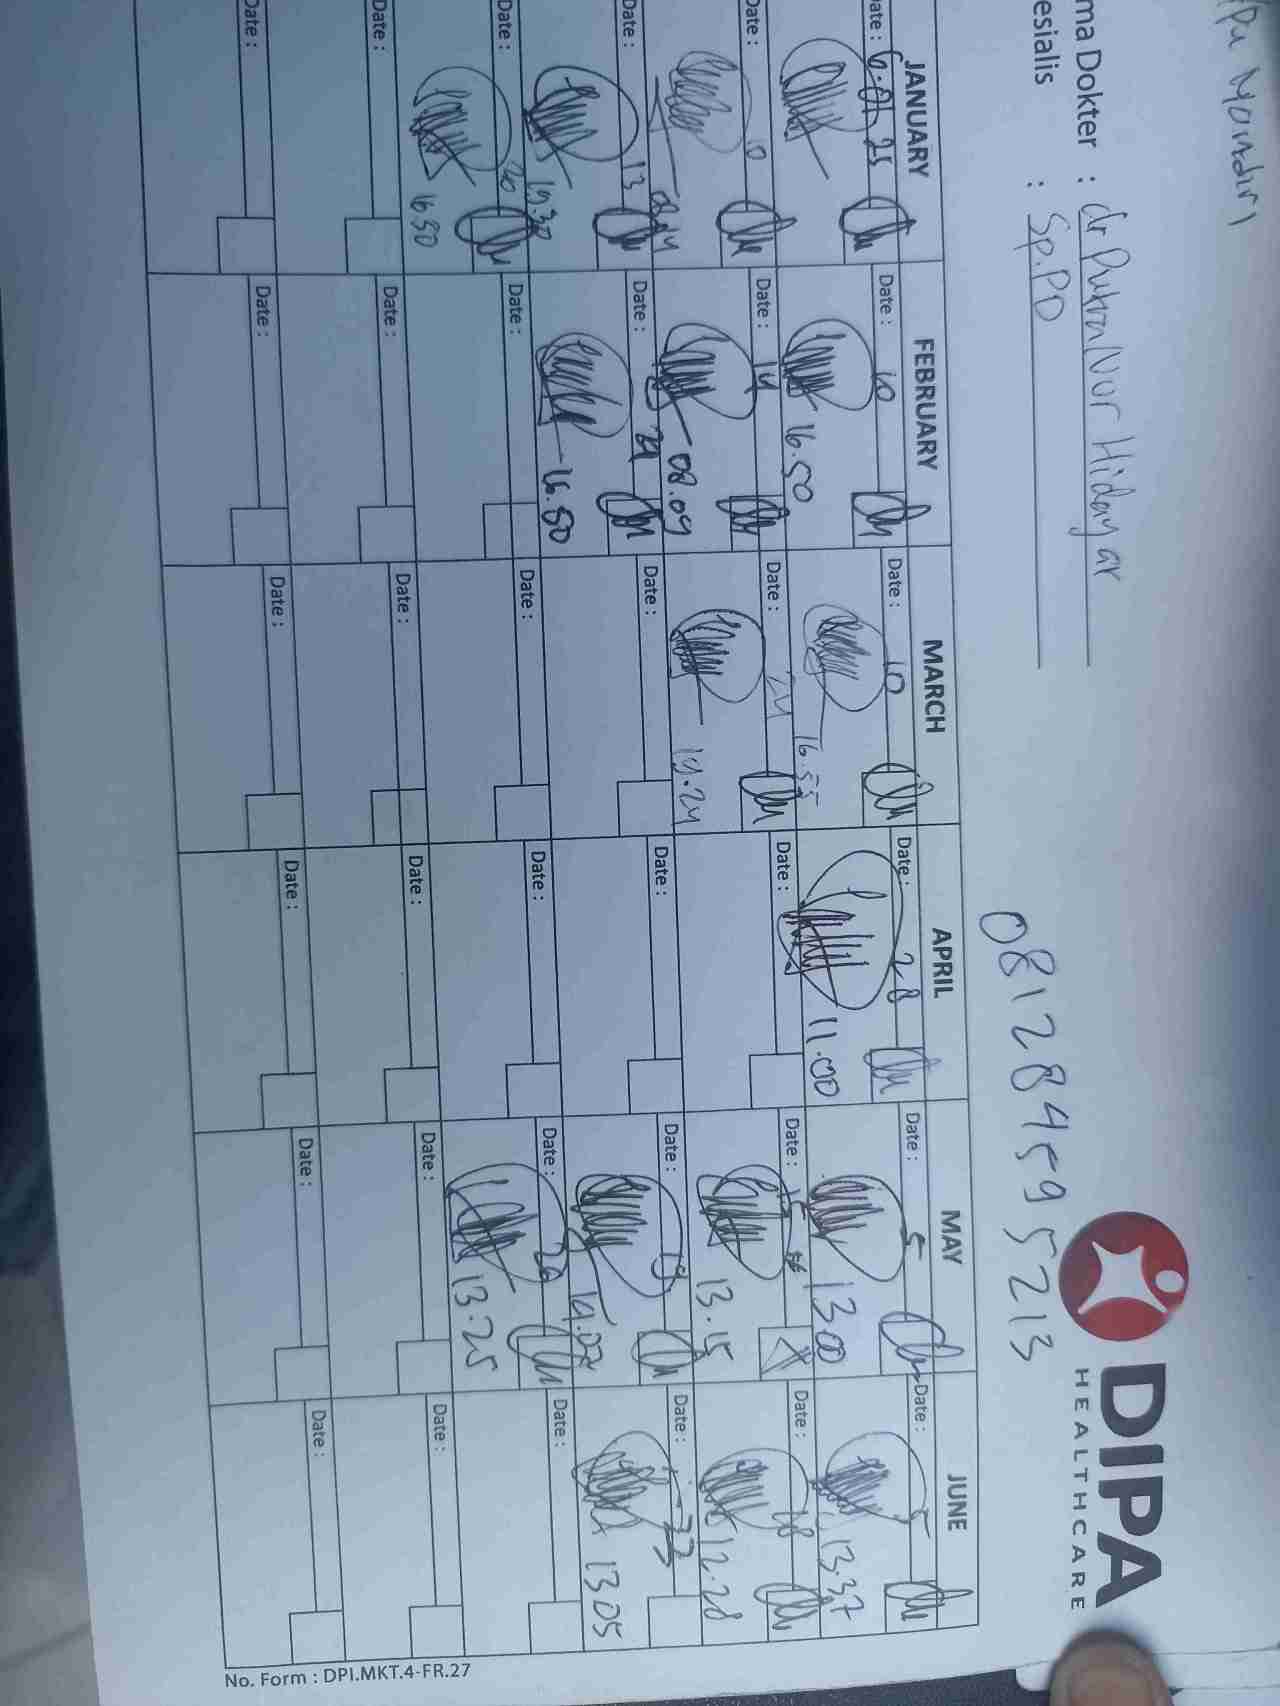 Mandiri
ma Dokter : dr Putra Nur Hidayat
esialis : Sp.PD
081284595213
DIPA
HEALTHCARE
JANUARY FEBRUARY MARCH APRIL MAY JUNE
Date : 6.01.25 Date : 10 Date : 10 Date : 28 Date : 5 Date : 5
16.50 16.55 11.00 13.00 13.37
Date : 10 Date : 14 Date : 24 Date : Date : 15 Date : 18
08.09 19.24 13.15 12.28
Date : 13 Date : 24 Date : Date : Date : 19 Date : 23
19.30 16.50 14.02 13.05
Date : 20 Date : Date : Date : Date : 26 Date :
16.50 13.25
Date : Date : Date : Date : Date : Date :
Date : Date : Date : Date : Date : Date :
No. Form : DPI.MKT.4-FR.27